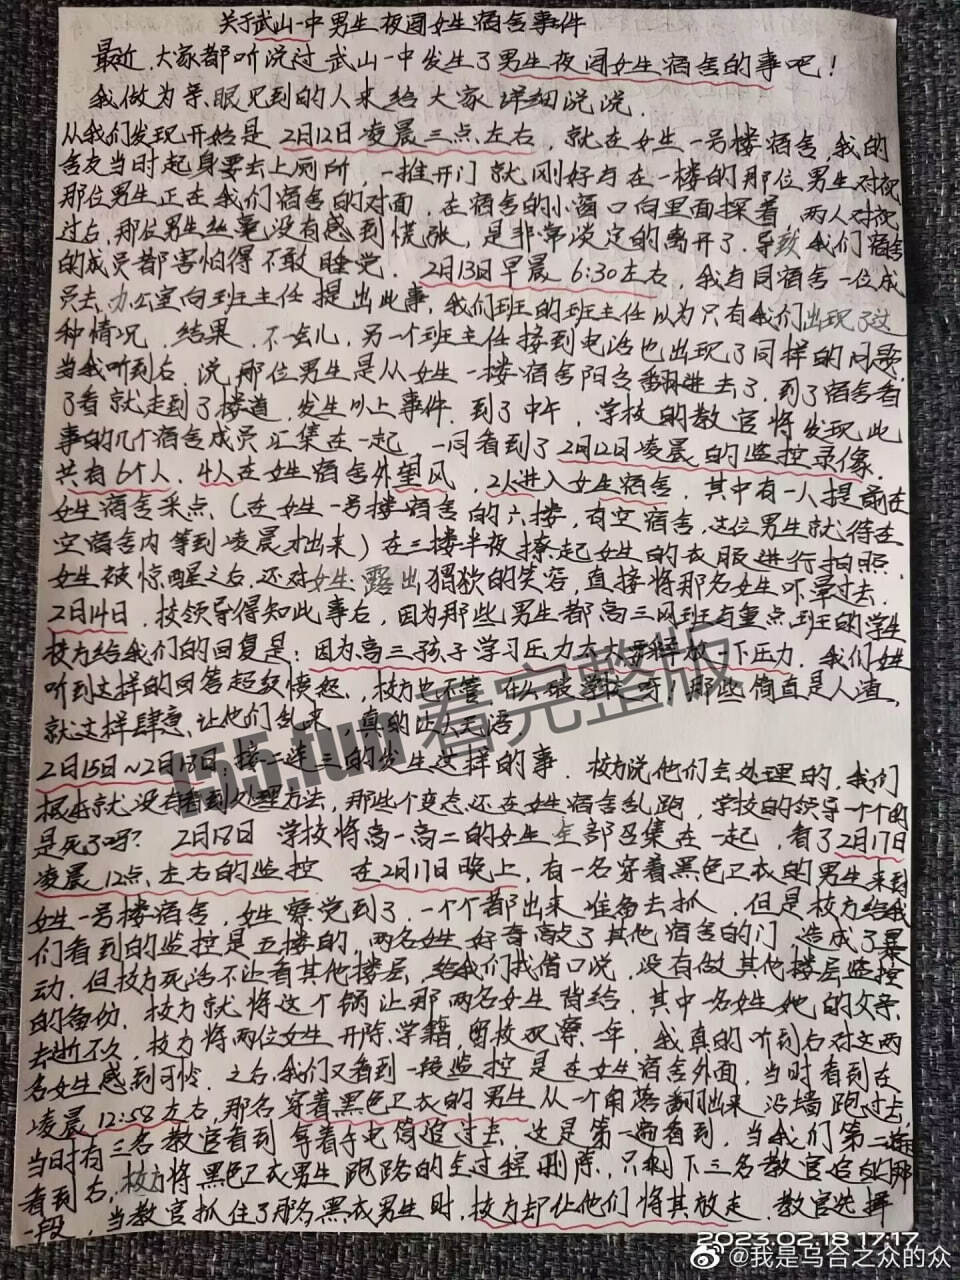 关于武山一中男生夜闯女生宿舍事件
最近,大家都听说过武山一中发生了男生夜闯女生宿舍的事吧!
我做为亲眼见到的人来给大家详细说说.
从我们发现开始是2月12日凌晨三点左右,就在女生一号楼宿舍,我的
舍友当时起身要去上厕所,一推开门就刚好与在一楼的那位男生对视
那位男生正在我们宿舍的对面,在宿舍的小窗口向里面探着,两人对视
过后,那位男生丝毫没有感到慌张,是非常淡定的离开了.导致我们宿舍
的成员都害怕得不敢睡觉.2月13日早晨6:30左右,我与同宿舍一位成
员去办公室向班主任提出此事,我们班的班主任以为只有我们出现了这
种情况,结果,不一会儿,另一个班主任接到电话也出现了同样的问题.
当我听到后,说那位男生是从女生一楼宿舍阳台翻进去了,到了宿舍看
了看就走到了楼道,发生以上事件.到了中午,学校的教官将发现此
事的几个宿舍成员汇集在一起,一同看到了2月12日凌晨的监控录像.
共有6个人,4人在女生宿舍外望风,2人进入女生宿舍,其中有一人提前在
女生宿舍采点(在女生一号楼宿舍的六楼,有空宿舍,这位男生就待在
空宿舍内等到凌晨才出来)在三楼半夜撩起女生的衣服进行拍照,
女生被惊醒之后,还对女生露出猥欲的笑容,直接将那名女生吓晕过去.
2月14日,校领导得知此事后,因为那些男生都高三网班与重点班的学生
校方给我们的回复是:因为高三孩子学习压力太大要释放一下压力.我们女生
听到这样的回答超级愤怒,校方也不管,什么破学校呀!那些简直是人渣,
就这样肆意,让他们乱来,真的让人无语
2月15日~2月17日接二连三的发生这样的事.校方说他们会处理的,我们
根本就没有看到处理方法,那些个变态还在女生宿舍乱跑,学校的领导一个个的
是死了吗?2月18日学校将高一高二的女生全部召集在一起,看了2月17日
凌晨12点左右的监控 在2月17日晚上,有一名穿着黑色卫衣的男生来到
女生一号楼宿舍,女生察觉到了,一个个都出来准备去抓,但是校方给我
们看到的监控是五楼的,两名女生好奇敲了其他宿舍的门,造成了暴
动,但校方死活不让看其他楼层,给我们找借口说,没有做其他楼层监控
的备份,校方就将这个锅让那两名女生背给,其中一名女生她的父亲
去逝不久,校方将两位女生开除学籍,留校观察一年,我真的听到后对这两
名女生感到可怜.之后,我们又看到一段监控是在女生宿舍外面,当时看到在
凌晨12:58左右,那名穿着黑色卫衣的男生从一个角落翻出来沿墙跑过去,
当时有三名教官看到拿着手电筒追过去,这是第一遍看到,当我们第二遍
看到后,校方将黑色卫衣男生跑路的全过程删除,只剩下三名教官追赶那
一段,当教官抓住了那名黑衣男生时,校方却让他们将其放走.教官选择
155.fun 看完整版
2023.02.18 17:17
@我是乌合之众的众